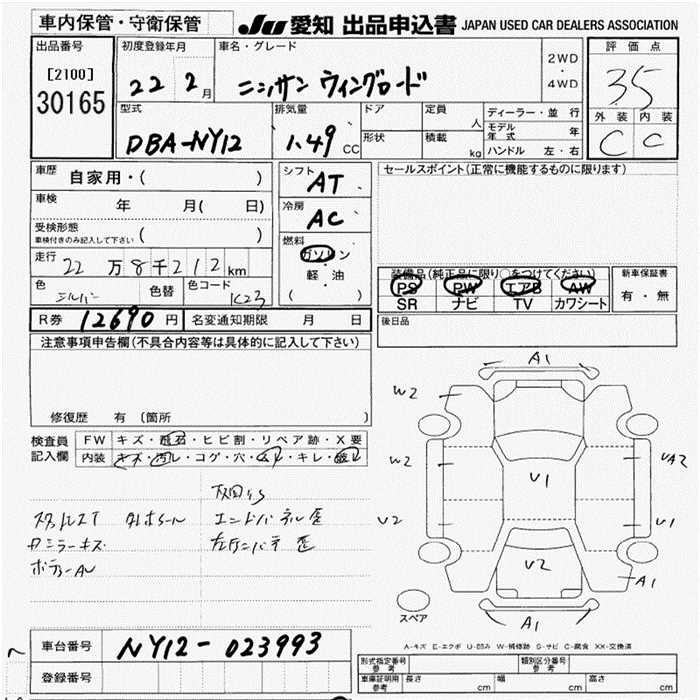 車内保管・守衛保管 JU 愛知 出品申込書 JAPAN USED CAR DEALERS ASSOCIATION
出品番号 [2100] 30165
初度登録年月 22 2月
車名・グレード ニッサン ウィングロード
2WD ・ 4WD
評価点 35
外装 内装
C C
型式 DBA-NY12
排気量 1.49 CC
ドア
形状
定員 人
積載 kg
ディーラー・並行
モデル年式 年
ハンドル 左・右
車歴 自家用・( )
車検 年 月( 日)
受検形態
車検付きのみ記入して下さい ( )
走行 22万8千212km
色 シルバー 色替 色コード K23
シフト AT
冷房 AC
燃料 ガソリン
・
軽・油
( )
セールスポイント(正常に機能するものに限ります)
装備品(純正品に限り○をつけてください)
PS PW エアB AW
SR ナビ TV カワシート
新車保証書
有・無
R券 12690 円 名変通知期限 月 日
後日品
注意事項申告欄(不具合内容等は具体的に記入して下さい)
修復歴 有 (箇所
検査員記入欄
FW キズ・飛石・ヒビ割・リペア跡・X要
内装 キズ・汚レ・コゲ・穴・スレ・キレ・破レ
エンドパネル歪
ドミラーキズ
ボディーAU
A1
W2
W2
U2
U1
U2
UA2
U1
A1
A1
スペア
A-キズ E-エクボ U-凹み W-補修跡 S-サビ C-腐食 XX-交換済
車台番号 NY12-023993
登録番号
型式指定番号 参考
類別区分番号 参考
車庫証明用 参考 長さ cm 幅 cm 高さ cm